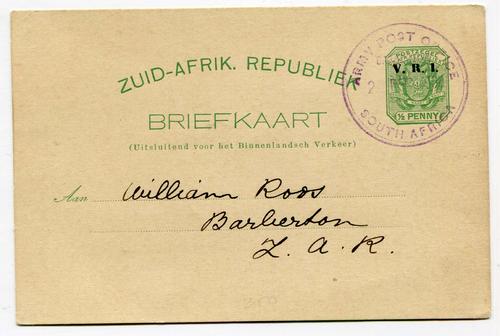 ZUID-AFRIK. REPUBLIEK
BRIEFKAART
(Uitsluitend voor het Binnenlandsch Verkeer)
Aan William Roos
Barberton
Z. A. R.
ARMY POST OFFICE
SOUTH AFRICA
POSTZEGEL
V. R. I.
½ PENNY